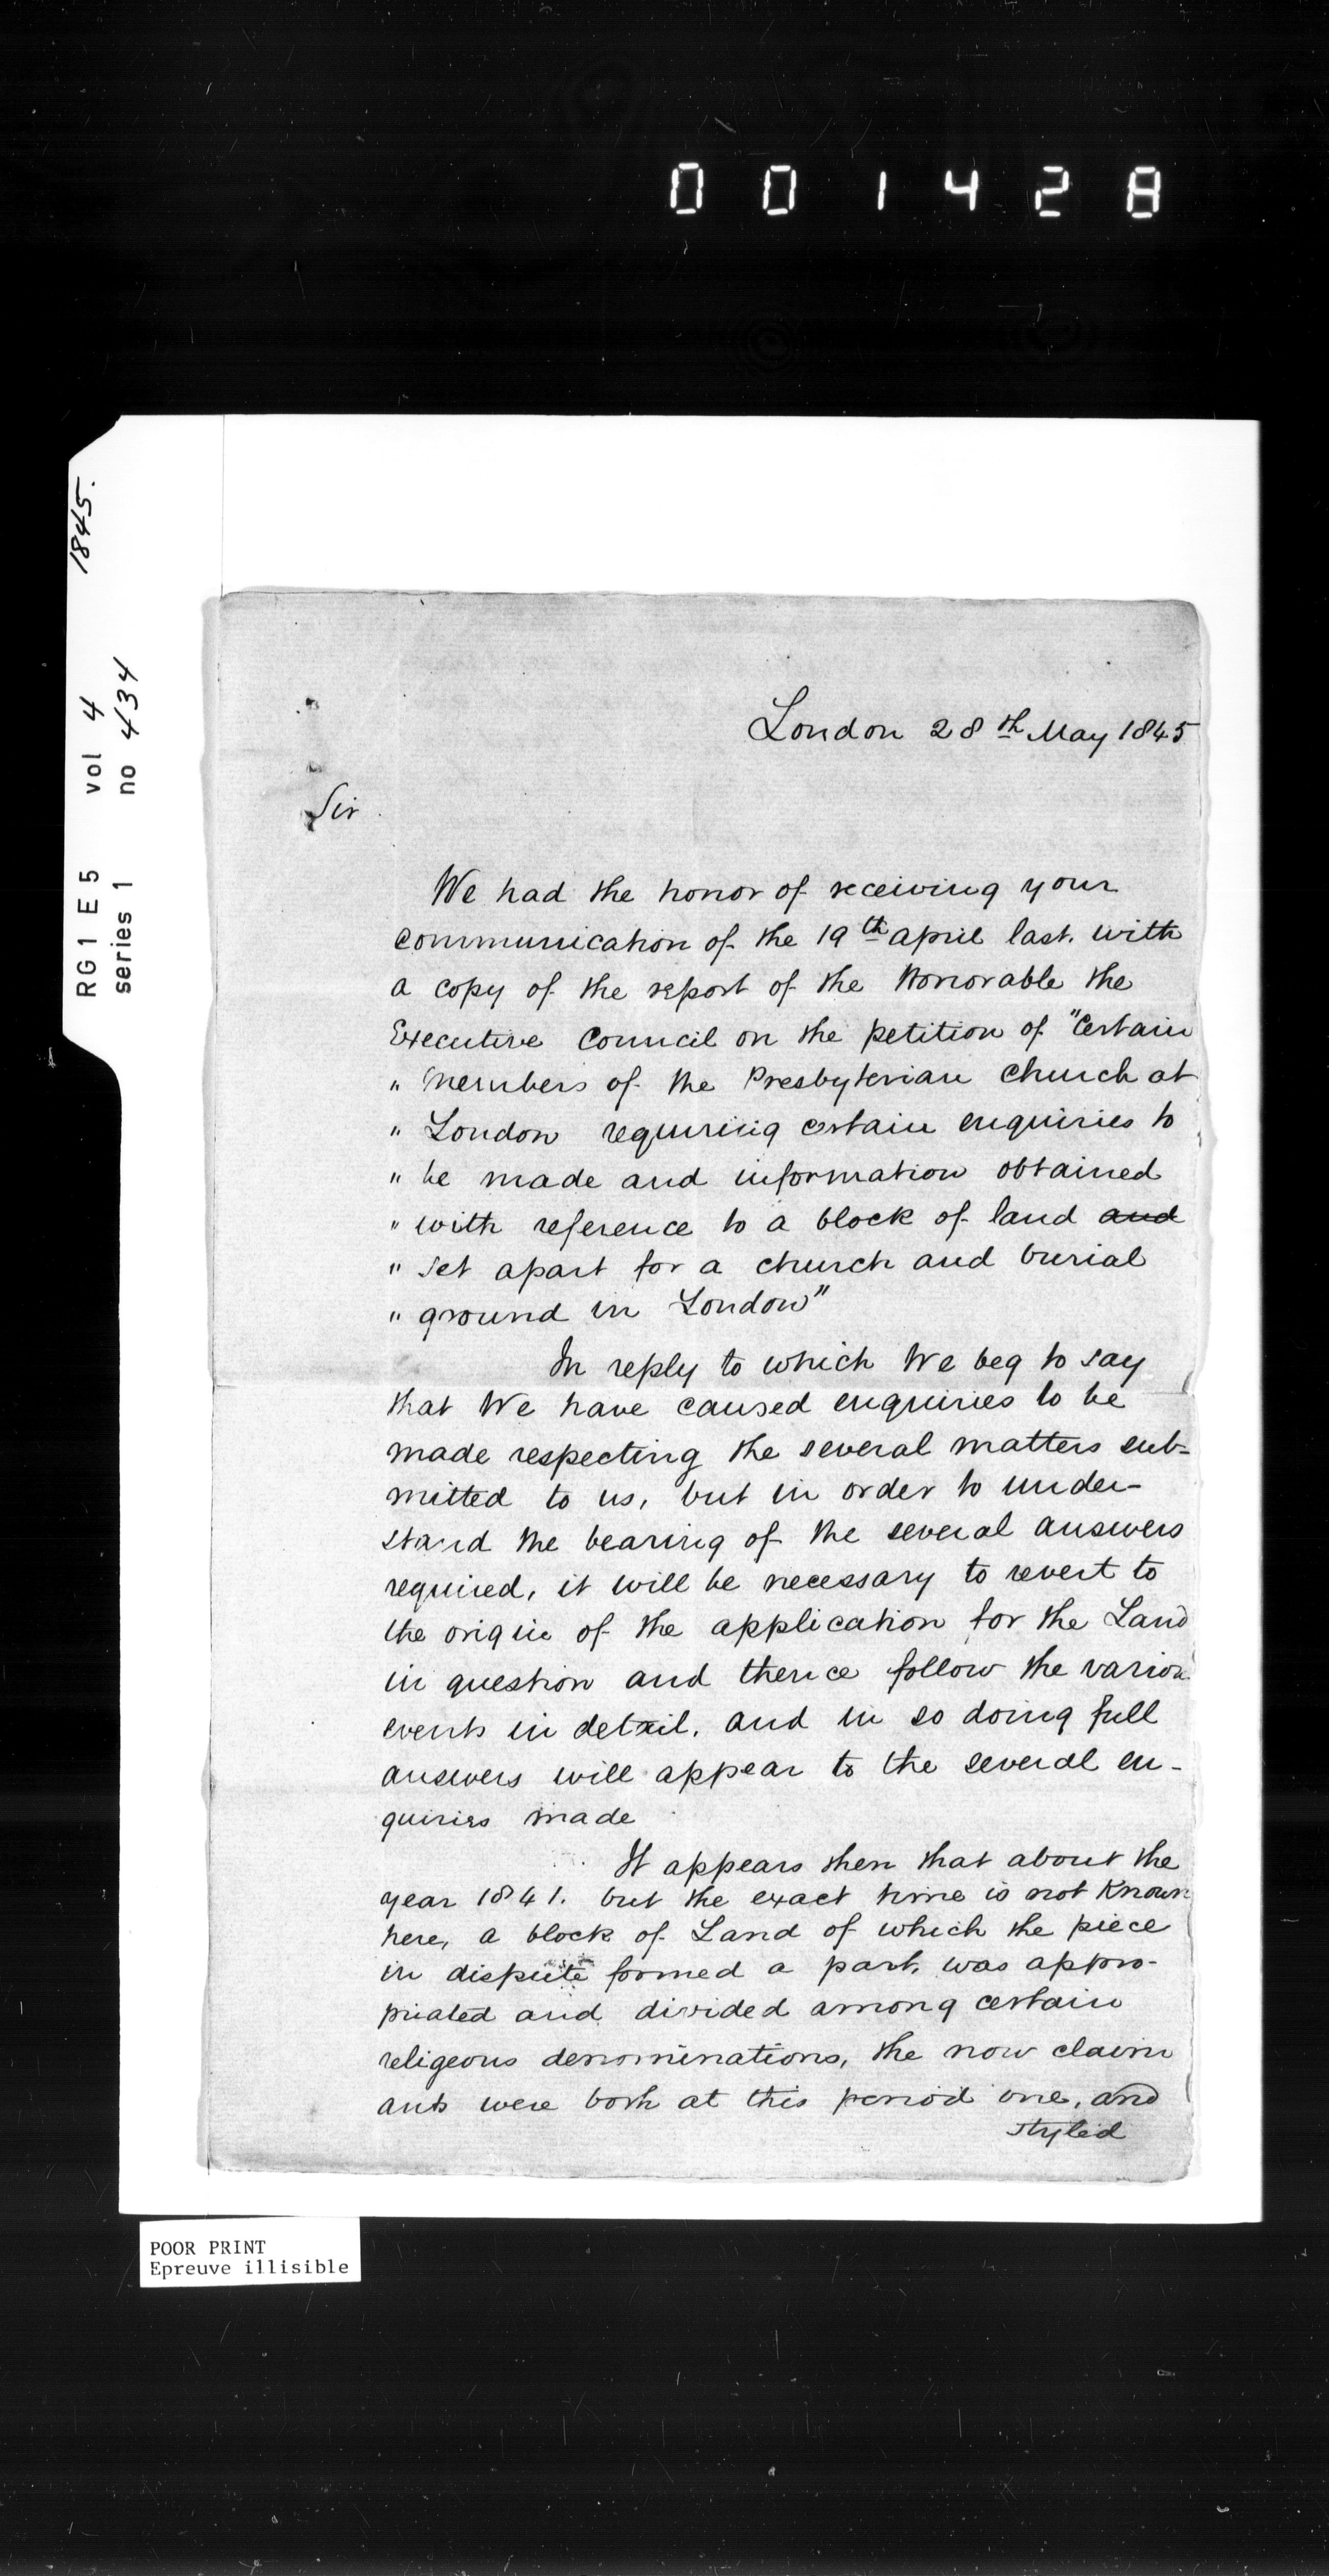 001428
1845.
RG1 E5 vol 4
series 1 no 434
London 28th May 1845
Sir
We had the honor of receiving your
communication of the 19th april last. with
a copy of the report of the Honorable the
Executive Council on the petition of "Certain
" Members of the Presbyterian Church at
" London requiring certain enquiries to
" be made and information obtained
" with reference to a block of land and
" set apart for a church and burial
" ground in London"
In reply to which We beg to say
that We have caused enquiries to be
made respecting the several matters sub-
mitted to us, but in order to under-
stand the bearing of the several answers
required, it will be necessary to revert to
the origin of the application for the Land
in question and thence follow the various
events in detail. and in so doing full
answers will appear to the several en-
quiries made
It appears then that about the
year 1841. but the exact time is not Known
here, a block of Land of which the piece
in dispute formed a part, was appro-
priated and divided among certain
religeous denominations, the now claim
ants were both at this period one, and
styled
POOR PRINT
Epreuve illisible